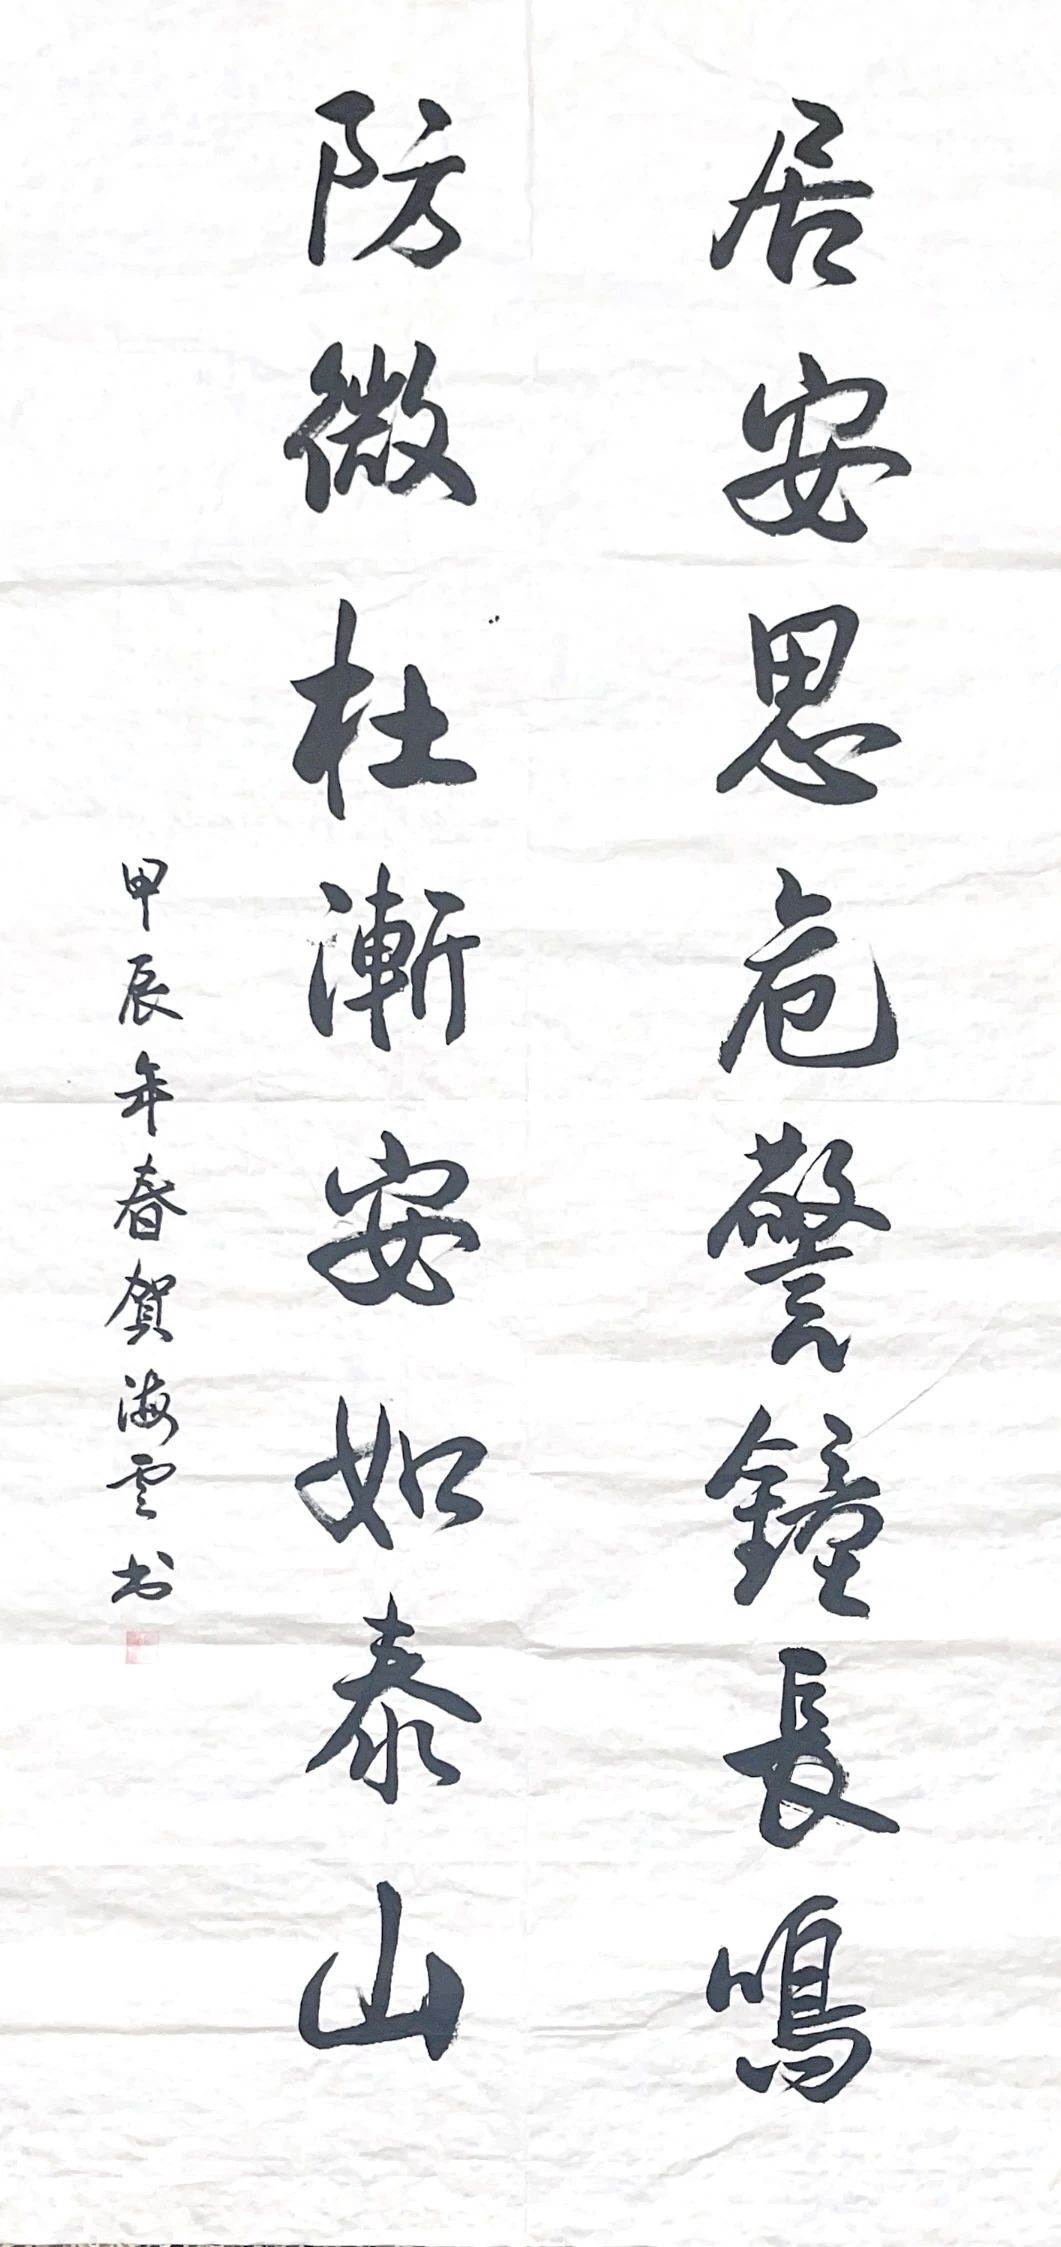 居安思危警鐘長鳴
防微杜漸安如泰山
甲辰年春賀海雲书